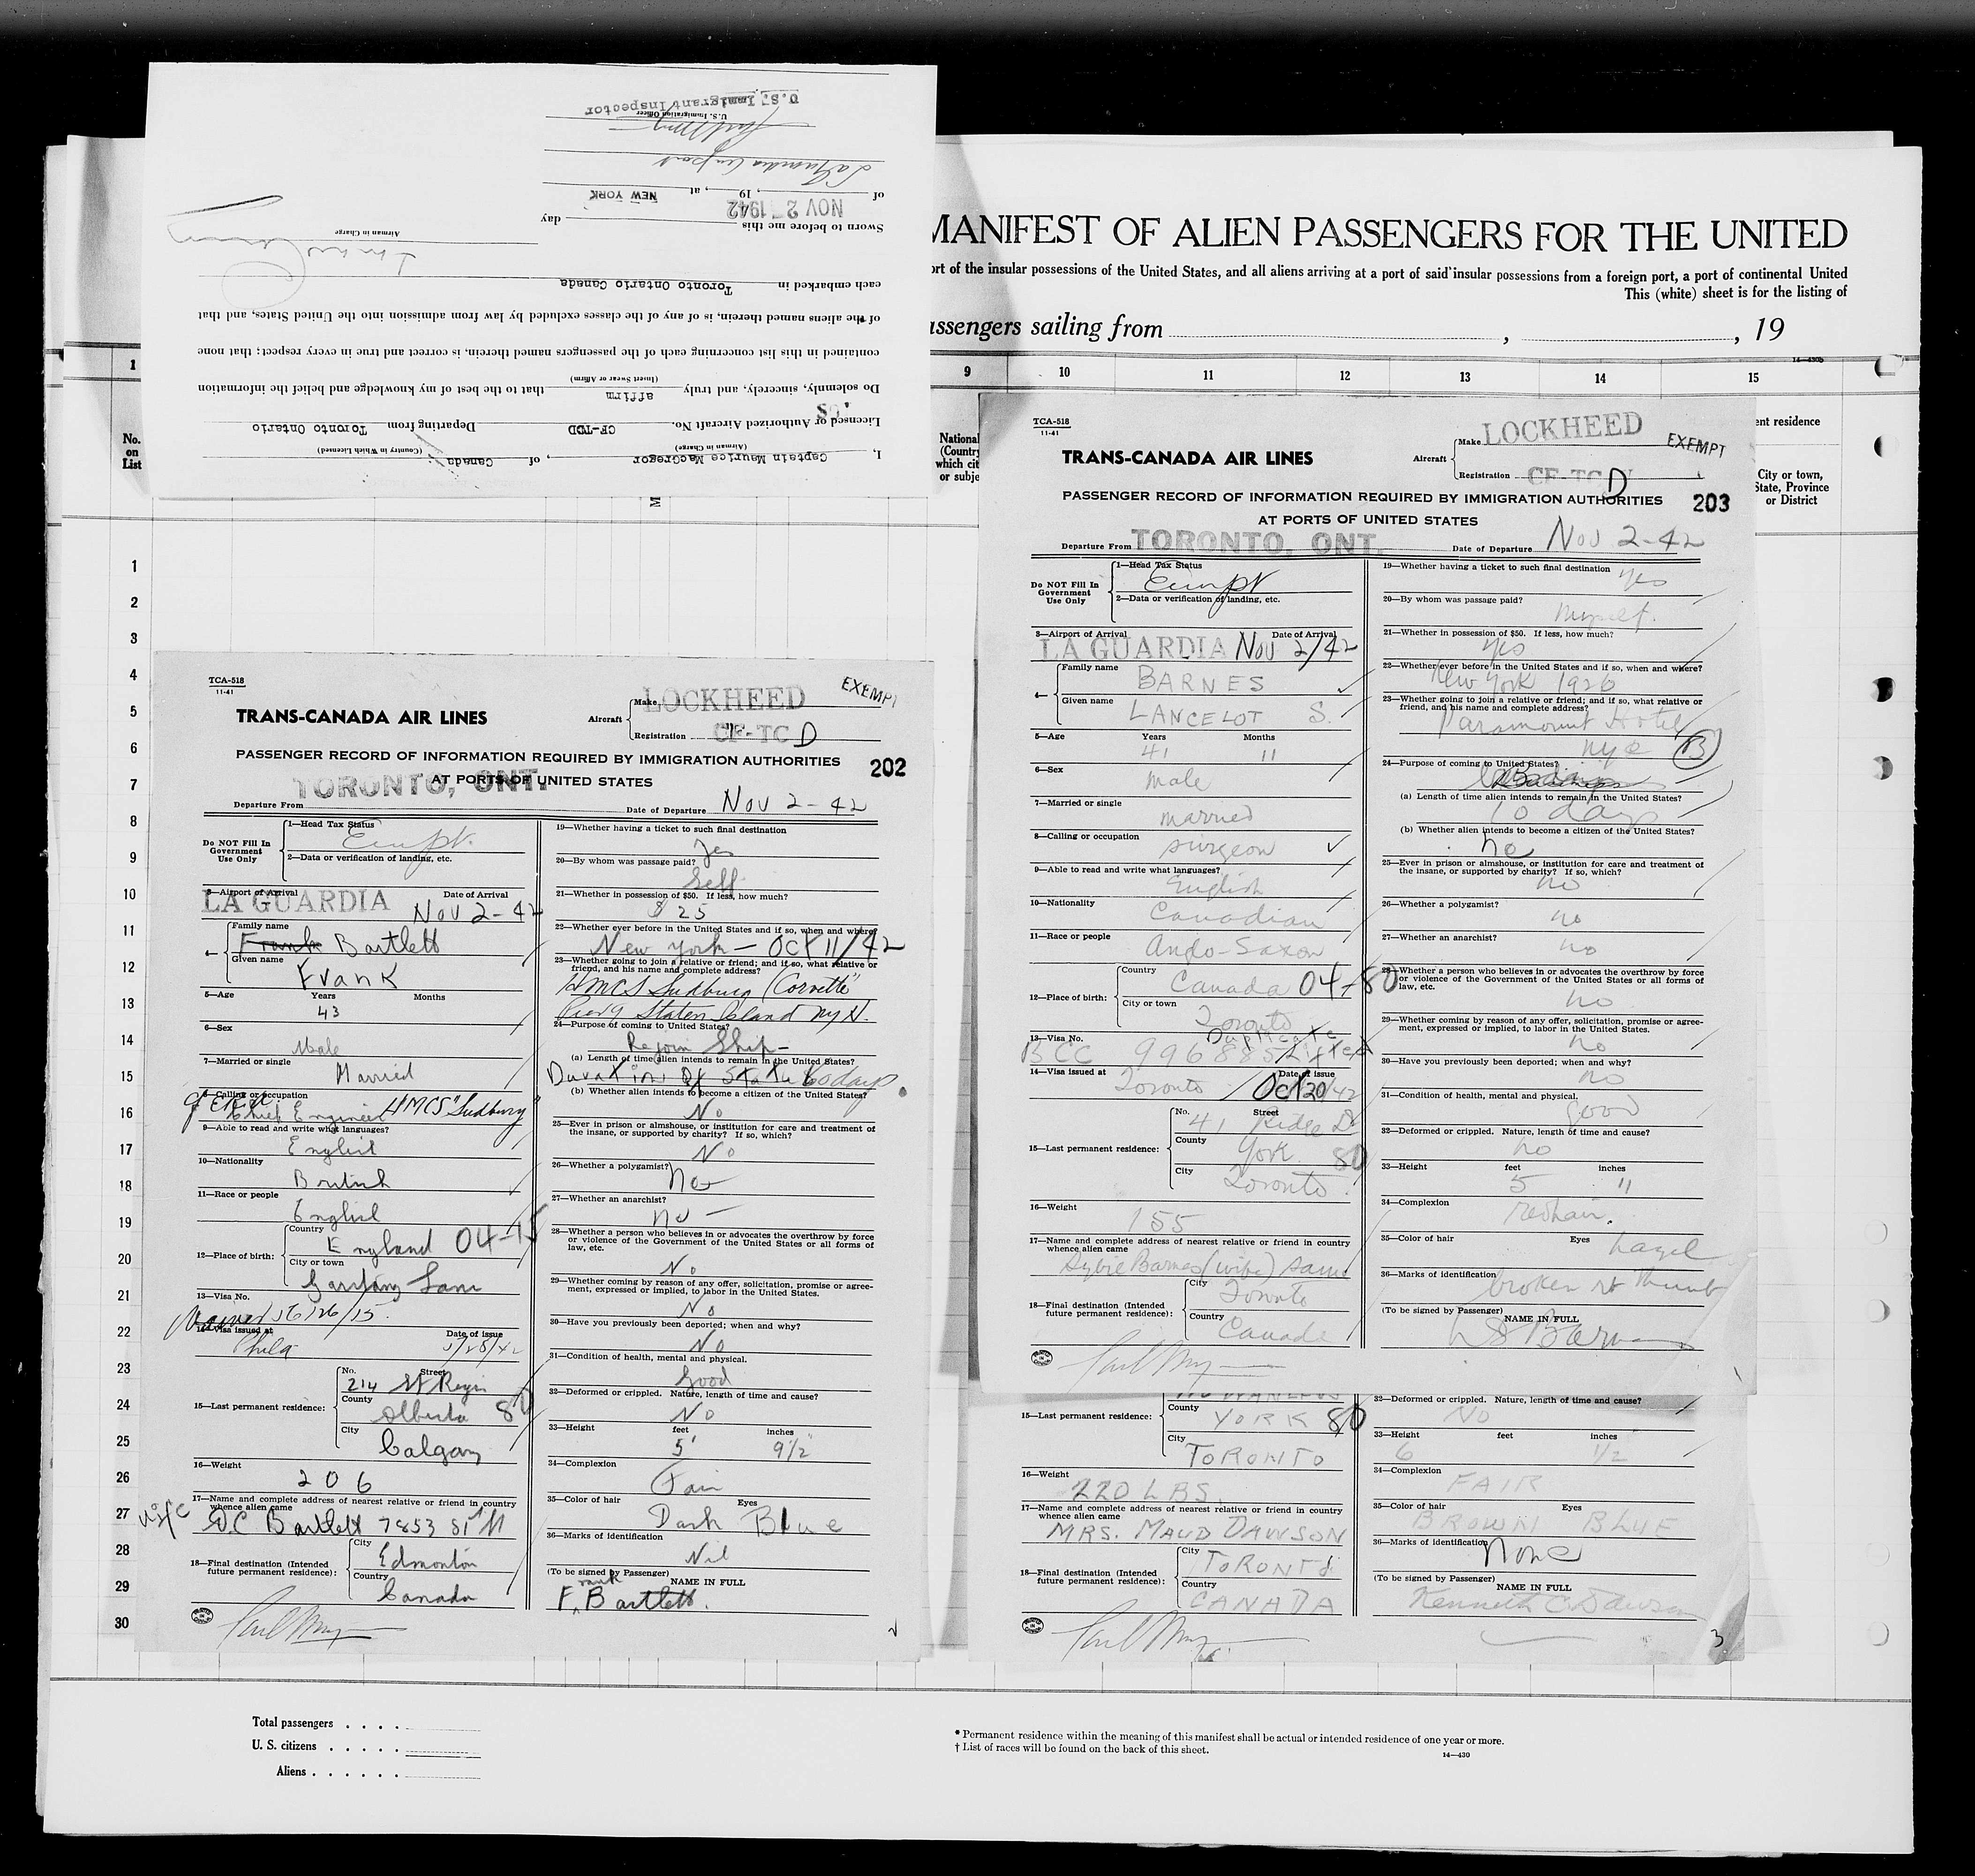 U.S. Immigrant Inspector
U.S. Immigration Officer
LaGuardia Airport
of , 19 , at NEW YORK
NOV 2 1942
Sworn to before me this day
Airman in Charge
each embarked in Toronto Ontario Canada
of the aliens named therein, is of any of the classes excluded by law from admission into the United States, and that
contained in this list concerning each of the passengers named therein, is correct and true in every respect; that none
(Insert Swear or Affirm)
Do solemnly, sincerely, and truly affirm that to the best of my knowledge and belief the information
Licensed or Authorized Aircraft No. CF-TDD Departing from Toronto Ontario
(Airman in Charge) (Country in Which Licensed)
I, Captain Maurice MacGregor, of Canada
MANIFEST OF ALIEN PASSENGERS FOR THE UNITED
ort of the insular possessions of the United States, and all aliens arriving at a port of said insular possessions from a foreign port, a port of continental United
This (white) sheet is for the listing of
assengers sailing from , , 19
1 9 10 11 12 13 14 15
No.
on
List
National
(Country
which cit
or subje
ent residence
City or town,
State, Province
or District
1
2
3
4
5
6
7
8
9
10
11
12
13
14
15
16
17
18
19
20
21
22
23
24
25
26
27
28
29
30
TCA-518
11-41
TRANS-CANADA AIR LINES
Aircraft
Make LOCKHEED
Registration CF-TC D
EXEMPT
PASSENGER RECORD OF INFORMATION REQUIRED BY IMMIGRATION AUTHORITIES
AT PORTS OF UNITED STATES
202
TORONTO, ONT.
Departure From Date of Departure Nov 2-42
Do NOT Fill In
Government
Use Only
1—Head Tax Status
Exempt.
2—Data or verification of landing, etc.
3—Airport of Arrival Date of Arrival
LA GUARDIA Nov 2-42
4—
Family name
Frank Bartlett
Given name
Frank
5—Age Years Months
43
6—Sex
Male
7—Married or single
Married
8—Calling or occupation
Chief Engineer HMCS "Sudbury"
9—Able to read and write what languages?
English
10—Nationality
British
11—Race or people
English
12—Place of birth:
Country
England 04-15
City or town
13—Visa No.
14—Visa issued at Date of issue
Phila
15—Last permanent residence:
No. Street
214 St Regis
County
Alberta 80
City
Calgary
16—Weight
206
17—Name and complete address of nearest relative or friend in country
whence alien came
Bartlett 7853 81st
18—Final destination (Intended
future permanent residence):
City
Edmonton
Country
Canada
19—Whether having a ticket to such final destination
Yes
20—By whom was passage paid?
Self
21—Whether in possession of $50. If less, how much?
$ 25
22—Whether ever before in the United States and if so, when and where?
New York — Oct 11/42
23—Whether going to join a relative or friend; and if so, what relative or
friend, and his name and complete address?
HMCS Sudbury (Corvette)
Pier 9 Staten Island N.Y.
24—Purpose of coming to United States?
Rejoin Ship-
(a) Length of time alien intends to remain in the United States?
60 days
(b) Whether alien intends to become a citizen of the United States?
No
25—Ever in prison or almshouse, or institution for care and treatment of
the insane, or supported by charity? If so, which?
No
26—Whether a polygamist?
No
27—Whether an anarchist?
no —
28—Whether a person who believes in or advocates the overthrow by force
or violence of the Government of the United States or all forms of
law, etc.
No
29—Whether coming by reason of any offer, solicitation, promise or agree-
ment, expressed or implied, to labor in the United States.
No
30—Have you previously been deported; when and why?
No
31—Condition of health, mental and physical.
Good
32—Deformed or crippled. Nature, length of time and cause?
No
33—Height feet inches
5' 9 1/2"
34—Complexion
Fair
35—Color of hair Eyes
Dark Blue
36—Marks of identification
Nil
(To be signed by Passenger)
NAME IN FULL
Frank Bartlett.
TCA-518
11-41
TRANS-CANADA AIR LINES
Aircraft
Make LOCKHEED
Registration CF-TC D
EXEMPT
PASSENGER RECORD OF INFORMATION REQUIRED BY IMMIGRATION AUTHORITIES
AT PORTS OF UNITED STATES
203
Departure From TORONTO, ONT. Date of Departure Nov 2-42
Do NOT Fill In
Government
Use Only
1—Head Tax Status
Exempt
2—Data or verification of landing, etc.
3—Airport of Arrival Date of Arrival
LA GUARDIA Nov 2/42
4—
Family name
BARNES
Given name
LANCELOT S.
5—Age Years Months
41 11
6—Sex
male
7—Married or single
married
8—Calling or occupation
surgeon
9—Able to read and write what languages?
English
10—Nationality
Canadian
11—Race or people
Anglo-Saxon
12—Place of birth:
Country
Canada 04-80
City or town
Toronto
13—Visa No. Duplicate
BCC 996885 Lifted
14—Visa issued at Date of issue
Toronto Oct 20/42
15—Last permanent residence:
No. Street
41 Ridge Dr
County
York. 80
City
Toronto.
16—Weight
155
17—Name and complete address of nearest relative or friend in country
whence alien came
Barnes (wife) same
18—Final destination (Intended
future permanent residence):
City
Toronto
Country
Canada
19—Whether having a ticket to such final destination
yes
20—By whom was passage paid?
myself.
21—Whether in possession of $50. If less, how much?
yes
22—Whether ever before in the United States and if so, when and where?
New York 1926
23—Whether going to join a relative or friend; and if so, what relative or
friend, and his name and complete address?
Paramount Hotel
nyc B
24—Purpose of coming to United States?
(a) Length of time alien intends to remain in the United States?
10 days
(b) Whether alien intends to become a citizen of the United States?
no
25—Ever in prison or almshouse, or institution for care and treatment of
the insane, or supported by charity? If so, which?
no
26—Whether a polygamist?
no
27—Whether an anarchist?
no
28—Whether a person who believes in or advocates the overthrow by force
or violence of the Government of the United States or all forms of
law, etc.
no
29—Whether coming by reason of any offer, solicitation, promise or agree-
ment, expressed or implied, to labor in the United States.
no
30—Have you previously been deported; when and why?
no
31—Condition of health, mental and physical.
good
32—Deformed or crippled. Nature, length of time and cause?
no
33—Height feet inches
5 11
34—Complexion
35—Color of hair Eyes
hazel
36—Marks of identification
broken rt thumb
(To be signed by Passenger)
NAME IN FULL
15—Last permanent residence:
County
YORK 80
City
TORONTO
16—Weight
220 LBS.
17—Name and complete address of nearest relative or friend in country
whence alien came
MRS. MAUD DAWSON
18—Final destination (Intended
future permanent residence):
City
TORONTO
Country
CANADA
32—Deformed or crippled. Nature, length of time and cause?
NO
33—Height feet inches
6 1/2
34—Complexion
FAIR
35—Color of hair Eyes
BROWN BLUE
36—Marks of identification
None
(To be signed by Passenger)
NAME IN FULL
Kenneth C. Dawson
3
Total passengers . . . .
U. S. citizens . . . . .
Aliens . . . . . .
* Permanent residence within the meaning of this manifest shall be actual or intended residence of one year or more.
† List of races will be found on the back of this sheet.
14—430